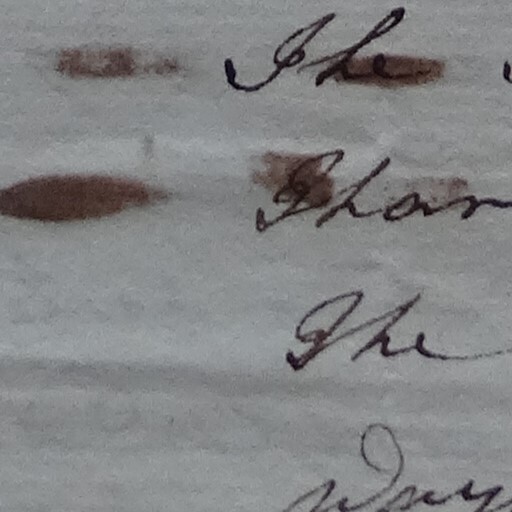 The
Than
The